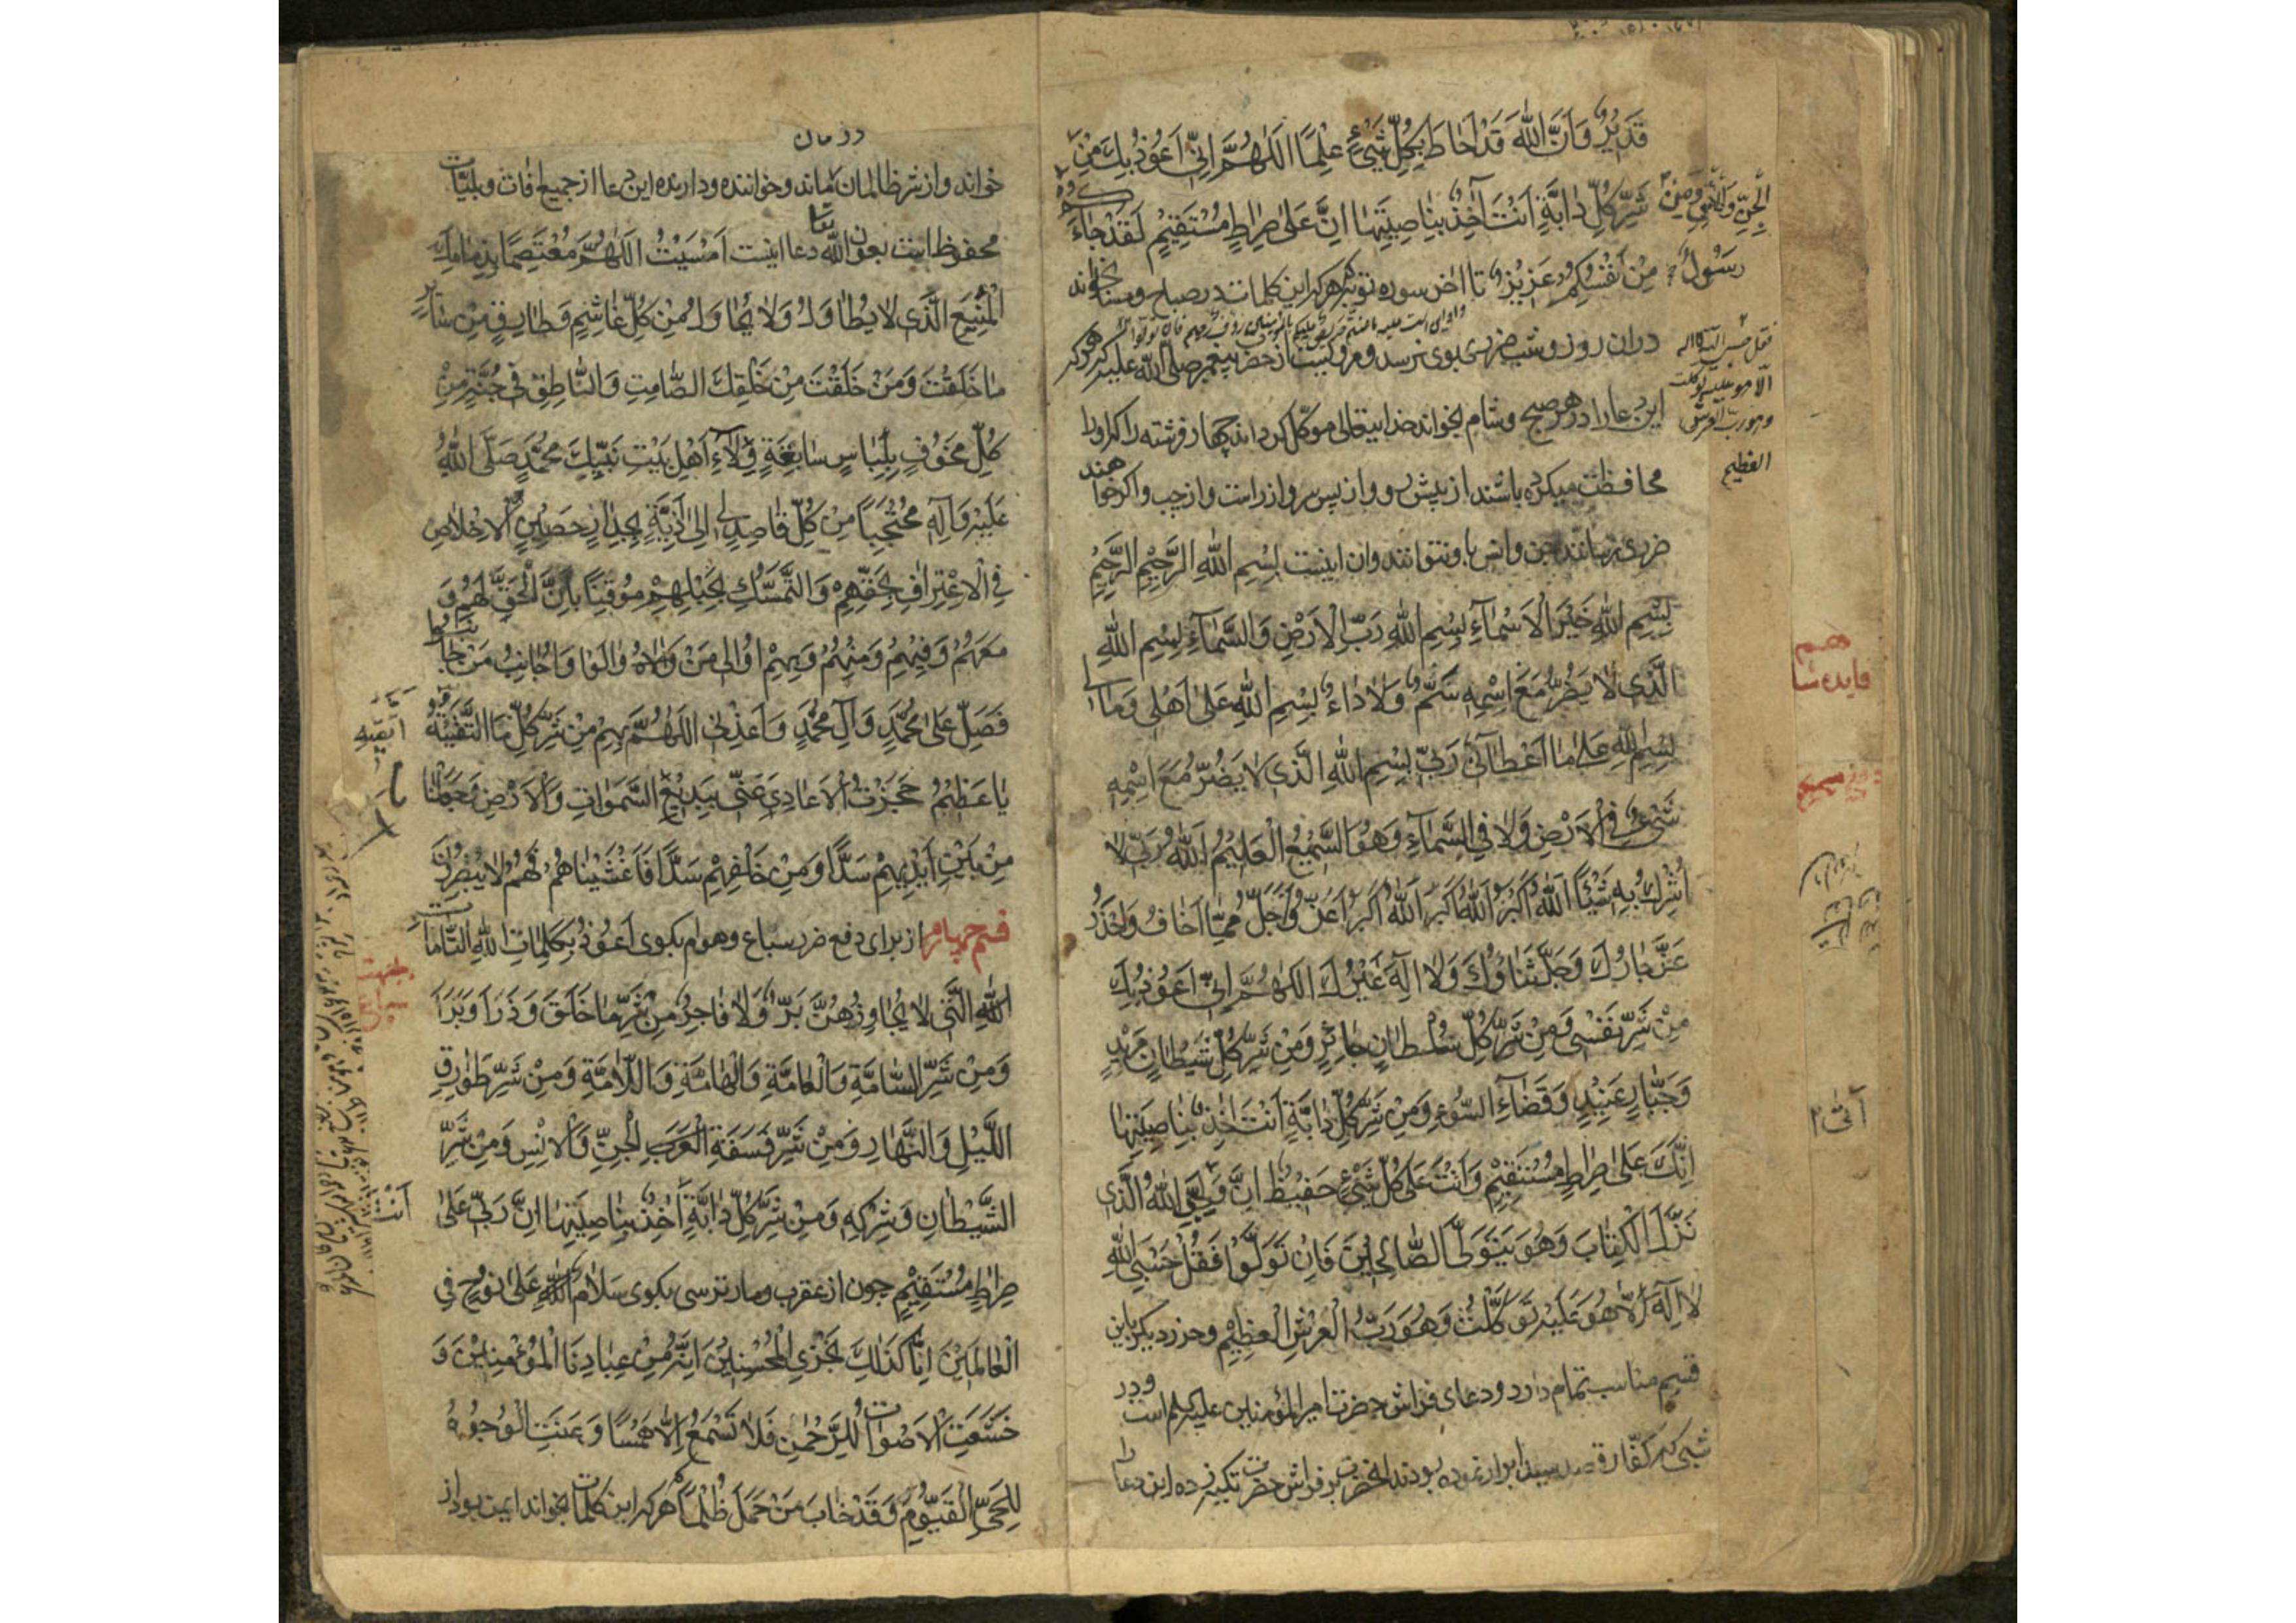 قَدِيرٌ وَاَنَّ اللهَ قَدْ اَحَاطَ بِكُلِّ شَيْءٍ عِلْمًا اَللّٰهُمَّ اِنِّي اَعُوذُ بِكَ مِنْ
شَرِّ كُلِّ دَابَّةٍ اَنْتَ آخِذٌ بِنَاصِيَتِهَا اِنَّ عَلٰى صِرَاطٍ مُسْتَقِيمٍ لَقَدْ جَاءَكُمْ
رَسُولٌ مِنْ اَنْفُسِكُمْ عَزِيزٌ تا اخر سوره توبه هركه اين كلمات در صباح ومسا بخواند
دران روز وشب ضررى بوى نرسد ومرويست از حضرت پيغمبر صلى الله عليه كه هركه
اين دعا را در هر صبح وشام بخواند خدايتعالى موكل گرداند چهار فرشته را كه او را
محافظت ميكرده باشند از پيش رو واز پس سر واز راست واز چپ واكر خواهند
ضررى رسانند جن وانس باو نتوانند وان اينست بِسْمِ اللهِ الرَّحْمٰنِ الرَّحِيمِ
بِسْمِ اللهِ خَيْرِ الْاَسْمَاءِ بِسْمِ اللهِ رَبِّ الْاَرْضِ وَالسَّمَاءِ بِسْمِ اللهِ
الَّذِي لَا يَضُرُّ مَعَ اسْمِهِ سَمٌّ وَلَا دَاءٌ بِسْمِ اللهِ عَلٰى اَهْلِي وَمَالِي
بِسْمِ اللهِ عَلٰى مَا اَعْطَانِي رَبِّي بِسْمِ اللهِ الَّذِي لَا يَضُرُّ مَعَ اسْمِهِ
شَيْءٌ فِي الْاَرْضِ وَلَا فِي السَّمَاءِ وَهُوَ السَّمِيعُ الْعَلِيمُ اَللهُ رَبِّي لَا
اُشْرِكُ بِهِ شَيْئًا اَللهُ اَكْبَرُ اَللهُ اَكْبَرُ اَللهُ اَكْبَرُ اَعَزُّ وَاَجَلُّ مِمَّا اَخَافُ وَاَحْذَرُ
عَزَّ جَارُكَ وَجَلَّ ثَنَاؤُكَ وَلَا اِلٰهَ غَيْرُكَ اَللّٰهُمَّ اِنِّي اَعُوذُ بِكَ
مِنْ شَرِّ نَفْسِي وَمِنْ شَرِّ كُلِّ سُلْطَانٍ جَائِرٍ وَمِنْ شَرِّ كُلِّ شَيْطَانٍ مَرِيدٍ
وَجَبَّارٍ عَنِيدٍ وَقَضَاءِ السُّوءِ وَمِنْ شَرِّ كُلِّ دَابَّةٍ اَنْتَ آخِذٌ بِنَاصِيَتِهَا
اِنَّكَ عَلٰى صِرَاطٍ مُسْتَقِيمٍ وَاَنْتَ عَلٰى كُلِّ شَيْءٍ حَفِيظٌ اِنَّ وَلِيِّيَ اللهُ الَّذِي
نَزَّلَ الْكِتَابَ وَهُوَ يَتَوَلَّى الصَّالِحِينَ فَاِنْ تَوَلَّوْا فَقُلْ حَسْبِيَ اللهُ
لَا اِلٰهَ اِلَّا هُوَ عَلَيْهِ تَوَكَّلْتُ وَهُوَ رَبُّ الْعَرْشِ الْعَظِيمِ وحرز ديكر باين
قسم مناسب تمام دارد ودعاى فراش حضرت امير المؤمنين عليه السلم است ودر
شبى كه كفار قصد سيد ابرار نموده بودند انحضرت بر فراش حضرت تكيه زده اين دعا را
الْجِنِّ وَالْاِنْسِ وَمِنْ
فقل حسبي الله لا اله
الا هو عليه توكلت
وهو رب العرش
العظيم
در امان
خواند واز شر ظالمان بماند وخواننده ودارنده اين دعا از جميع افات وبليات
محفوظ است بعون الله تعا دعا اينست اَمْسَيْتُ اَللّٰهُمَّ مُعْتَصِمًا بِذِمَامِكَ
الْمَنِيعِ الَّذِي لَا يُطَاوَلُ وَلَا يُحَاوَلُ مِنْ كُلِّ غَاشِمٍ وَطَارِقٍ مِنْ سَائِرِ
مَا خَلَقْتَ وَمَنْ خَلَقْتَ مِنْ خَلْقِكَ الصَّامِتِ وَالنَّاطِقِ فِي جُنَّةٍ مِنْ
كُلِّ مَخُوفٍ بِلِبَاسٍ سَابِغَةٍ وَلَاءِ اَهْلِ بَيْتِ نَبِيِّكَ مُحَمَّدٍ صَلَّى اللهُ
عَلَيْهِ وَآلِهِ مُحْتَجِبًا مِنْ كُلِّ قَاصِدٍ لِي اِلٰى اَذِيَّةٍ بِجِدَارٍ حَصِينِ الْاِخْلَاصِ
فِي الْاِعْتِرَافِ بِحَقِّهِمْ وَالتَّمَسُّكِ بِحَبْلِهِمْ مُوقِنًا بِاَنَّ الْحَقَّ لَهُمْ وَ
مَعَهُمْ وَفِيهِمْ وَمِنْهُمْ وَبِهِمْ اُوَالِي مَنْ وَالَوْا وَاُجَانِبُ مَنْ جَانَبُوا
فَصَلِّ عَلٰى مُحَمَّدٍ وَآلِ مُحَمَّدٍ وَاَعِذْنِي اَللّٰهُمَّ بِهِمْ مِنْ شَرِّ كُلِّ مَا اَتَّقِيهِ
يَا عَظِيمُ حَجَزْتُ الْاَعَادِيَ عَنِّي بِبَدِيعِ السَّمٰوَاتِ وَالْاَرْضِ وَجَعَلْنَا
مِنْ بَيْنِ اَيْدِيهِمْ سَدًّا وَمِنْ خَلْفِهِمْ سَدًّا فَاَغْشَيْنَاهُمْ فَهُمْ لَا يُبْصِرُونَ
قسم چهارم از براى دفع ضرر سباع وهوام بكوى اَعُوذُ بِكَلِمَاتِ اللهِ التَّامَّاتِ
اللهِ الَّتِي لَا يُجَاوِزُهُنَّ بَرٌّ وَلَا فَاجِرٌ مِنْ شَرِّ مَا خَلَقَ وَذَرَاَ وَبَرَاَ
وَمِنْ شَرِّ السَّامَّةِ وَالْعَامَّةِ وَالْهَامَّةِ وَاللَّامَّةِ وَمِنْ شَرِّ طَوَارِقِ
اللَّيْلِ وَالنَّهَارِ وَمِنْ شَرِّ فَسَقَةِ الْعَرَبِ الْجِنِّ وَالْاِنْسِ وَمِنْ شَرِّ
الشَّيْطَانِ وَشِرْكِهِ وَمِنْ شَرِّ كُلِّ دَابَّةٍ آخِذٌ بِنَاصِيَتِهَا اِنَّ رَبِّي عَلٰى
صِرَاطٍ مُسْتَقِيمٍ چون از عقرب ومار ترسى بكوى سَلَامُ اللهِ عَلٰى نُوحٍ فِي
الْعَالَمِينَ اِنَّا كَذٰلِكَ نَجْزِي الْمُحْسِنِينَ اِنَّهُ مِنْ عِبَادِنَا الْمُؤْمِنِينَ وَ
خَشَعَتِ الْاَصْوَاتُ لِلرَّحْمٰنِ فَلَا تَسْمَعُ اِلَّا هَمْسًا وَعَنَتِ الْوُجُوهُ
لِلْحَيِّ الْقَيُّومِ وَقَدْ خَابَ مَنْ حَمَلَ ظُلْمًا هركه اين كلمات بخواند ايمن بود از
اتقيه
اَنْتَ